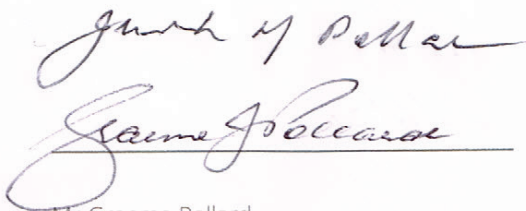 Judith M Pollard
Graeme J Pollard
Mr Graeme Pollard